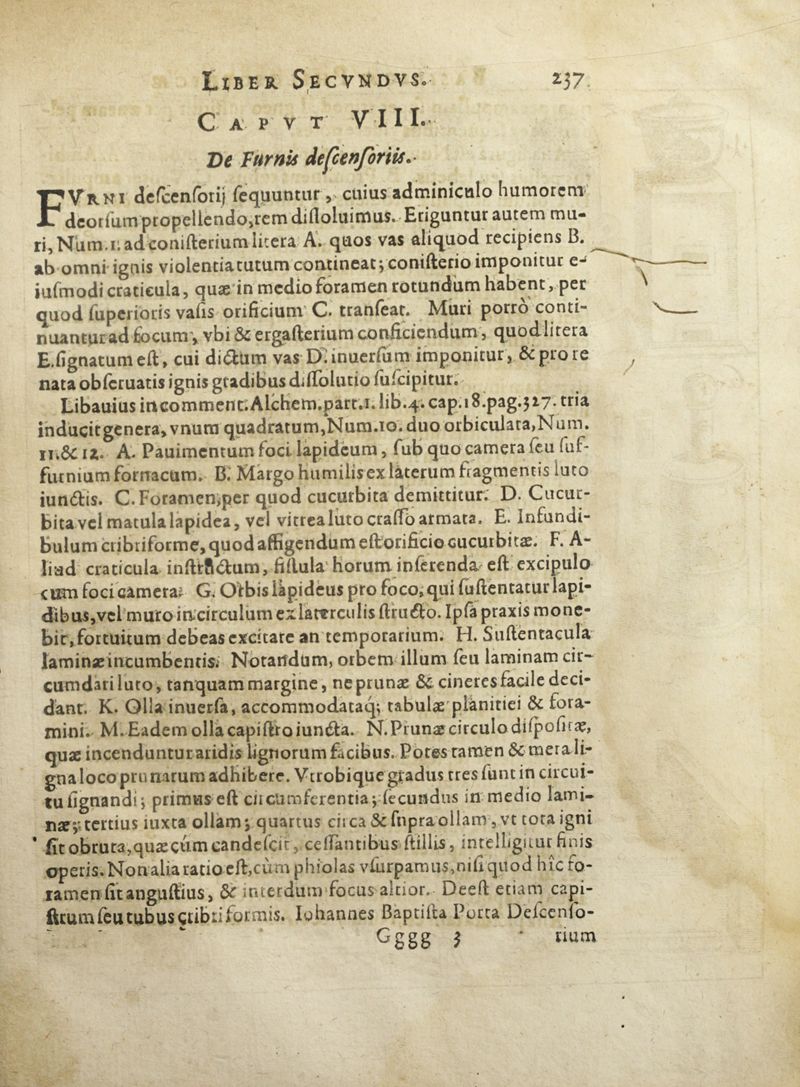 LIBER SECVNDVS. 237
CAPVT VIII.
De Furnis deſcenſoriis.
FVRNI deſcenſorij ſequuntur, cuius adminiculo humorem
deorſum propellendo, rem diſſoluimus. Eriguntur autem mu-
ri, Num. 1. ad coniſterium litera A. quos vas aliquod recipiens B.
ab omni ignis violentia tutum contineat; coniſterio imponitur e-
iuſmodi craticula, quæ in medio foramen rotundum habent, per
quod ſuperioris vaſis orificium C. tranſeat. Muri porrò conti-
nuantur ad focum, vbi & ergaſterium conficiendum, quod litera
E. ſignatum eſt, cui dictum vas D. inuerſum imponitur, & pro re
nata obſeruatis ignis gradibus diſſolutio ſuſcipitur.
Libauius in comment. Alchem. part. 1. lib. 4. cap. 18. pag. 327. tria
inducit genera, vnum quadratum, Num. 10. duo orbiculata, Num.
11. & 12. A. Pauimentum foci lapideum, ſub quo camera ſeu ſuf-
furnium fornacum. B. Margo humilis ex laterum fragmentis luto
iunctis. C. Foramen, per quod cucurbita demittitur. D. Cucur-
bita vel matula lapidea, vel vitrea luto craſſo armata. E. Infundi-
bulum cribriforme, quod affigendum eſt orificio cucurbitæ. F. A-
liud craticula inſtructum, fiſtula horum inſerenda eſt excipulo
cum foci camera. G. Orbis lapideus pro foco, qui ſuſtentatur lapi-
dibus, vel muro in circulum ex laterculis ſtructo. Ipſa praxis mone-
bit, fortuitum debeas excitare an temporarium. H. Suſtentacula
laminæ incumbentis. Notandum, orbem illum ſeu laminam cir-
cumdari luto, tanquam margine, ne prunæ & cineres facile deci-
dant. K. Olla inuerſa, accommodataq; tabulæ planitiei & fora-
mini. M. Eadem olla capiſtro iuncta. N. Prunæ circulo diſpoſitæ,
quæ incenduntur aridis lignorum facibus. Potes tamen & mera li-
gna loco prunarum adhibere. Vtrobique gradus tres ſunt in circui-
tu ſignandi; primus eſt circumferentia; ſecundus in medio lami-
næ; tertius iuxta ollam; quartus circa & ſupra ollam, vt tota igni
ſit obruta, quæ cùm candeſcit, ceſſantibus ſtillis, intelligitur finis
operis. Non alia ratio eſt, cùm phiolas vſurpamus, niſi quod hîc fo-
ramen ſit anguſtius, & interdum focus altior. Deeſt etiam capi-
ſtrum ſeu tubus cribriformis. Iohannes Baptiſta Porta Deſcenſo-
Gggg 3 rium